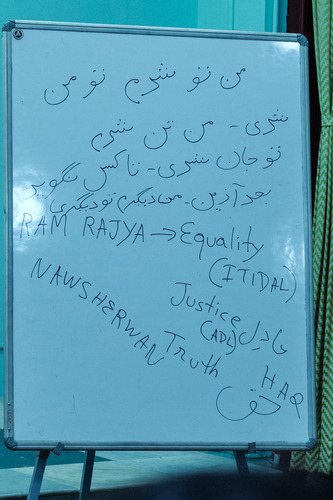 من تو شدم تو من
شدی - من تن شدم
تو جان شدی - تا کس نگوید
بعد ازین - من دیگرم تو دیگری
RAM RAJYA → Equality
(ITIDAL)
Justice عادل
(ADL)
NAWSHERWAN
Truth
HAQ
حق